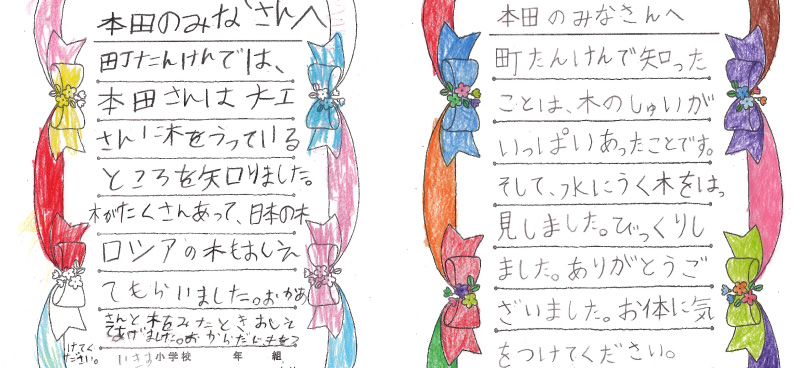 本田のみなさんへ
町たんけんでは、
本田さんは大工
さんに木をうっている
ところを知りました。
木がたくさんあって、日本の木
ロシアの木もおしえ
てもらいました。おかあ
さんと木をみたときおしえ
てあげました。おからだに気をつ
けてく
ださい。
小学校 年 組
本田のみなさんへ
町たんけんで知った
ことは、木のしゅいが
いっぱいあったことです。
そして、水にうく木をはっ
見しました。びっくりし
ました。ありがとうご
ざいました。お体に気
をつけてください。